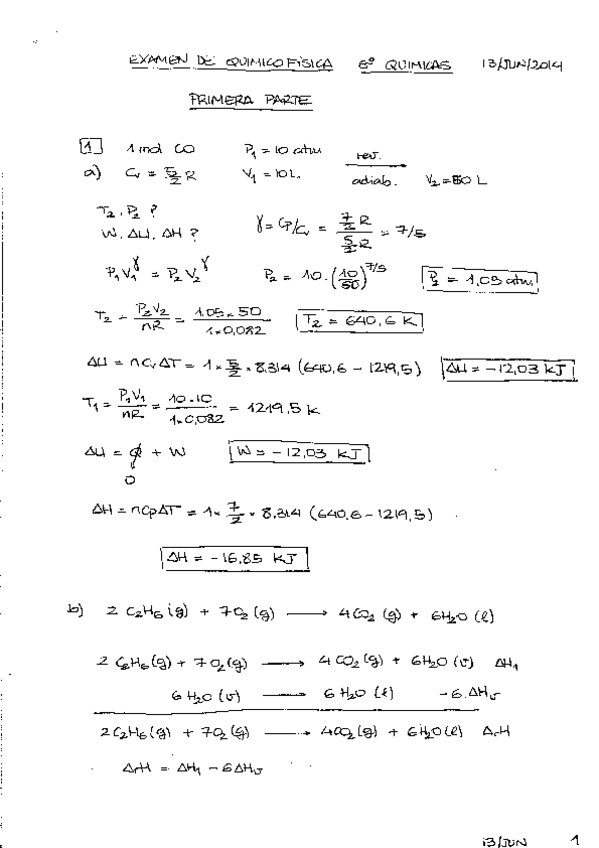 EXAMEN DE QUIMICOFÍSICA 6º QUIMICAS 13/JUN/2014
PRIMERA PARTE
1 1 mol CO P₁ = 10 atm rev.
a) Cv = 5/2 R V₁ = 10 L. adiab. V₂ = 50 L
T₂, P₂ ?
W, ΔU, ΔH ? γ = Cp/Cv = (7/2 R)/(5/2 R) = 7/5
P₁V₁^γ = P₂V₂^γ P₂ = 10 · (10/50)^7/5 P₂ = 1,05 atm
T₂ = P₂V₂/nR = 1.05 × 50/1 × 0,082 T₂ = 640,6 K
ΔU = nCvΔT = 1 × 5/2 × 8,314 (640,6 − 1219,5) ΔU = −12,03 KJ
T₁ = P₁V₁/nR = 10·10/1×0,082 = 1219,5 K
ΔU = q + W W = −12,03 KJ
0
ΔH = nCpΔT = 1 × 7/2 × 8,314 (640,6 − 1219,5)
ΔH = −16,85 KJ
b) 2 C₂H₆(g) + 7O₂(g) → 4CO₂(g) + 6H₂O(l)
2 C₂H₆(g) + 7O₂(g) → 4CO₂(g) + 6H₂O(v) ΔH₁
6H₂O(v) → 6H₂O(l) −6·ΔHv
2C₂H₆(g) + 7O₂(g) → 4CO₂(g) + 6H₂O(l) ΔrH
ΔrH = ΔH₁ − 6ΔHv
13/JUN 1